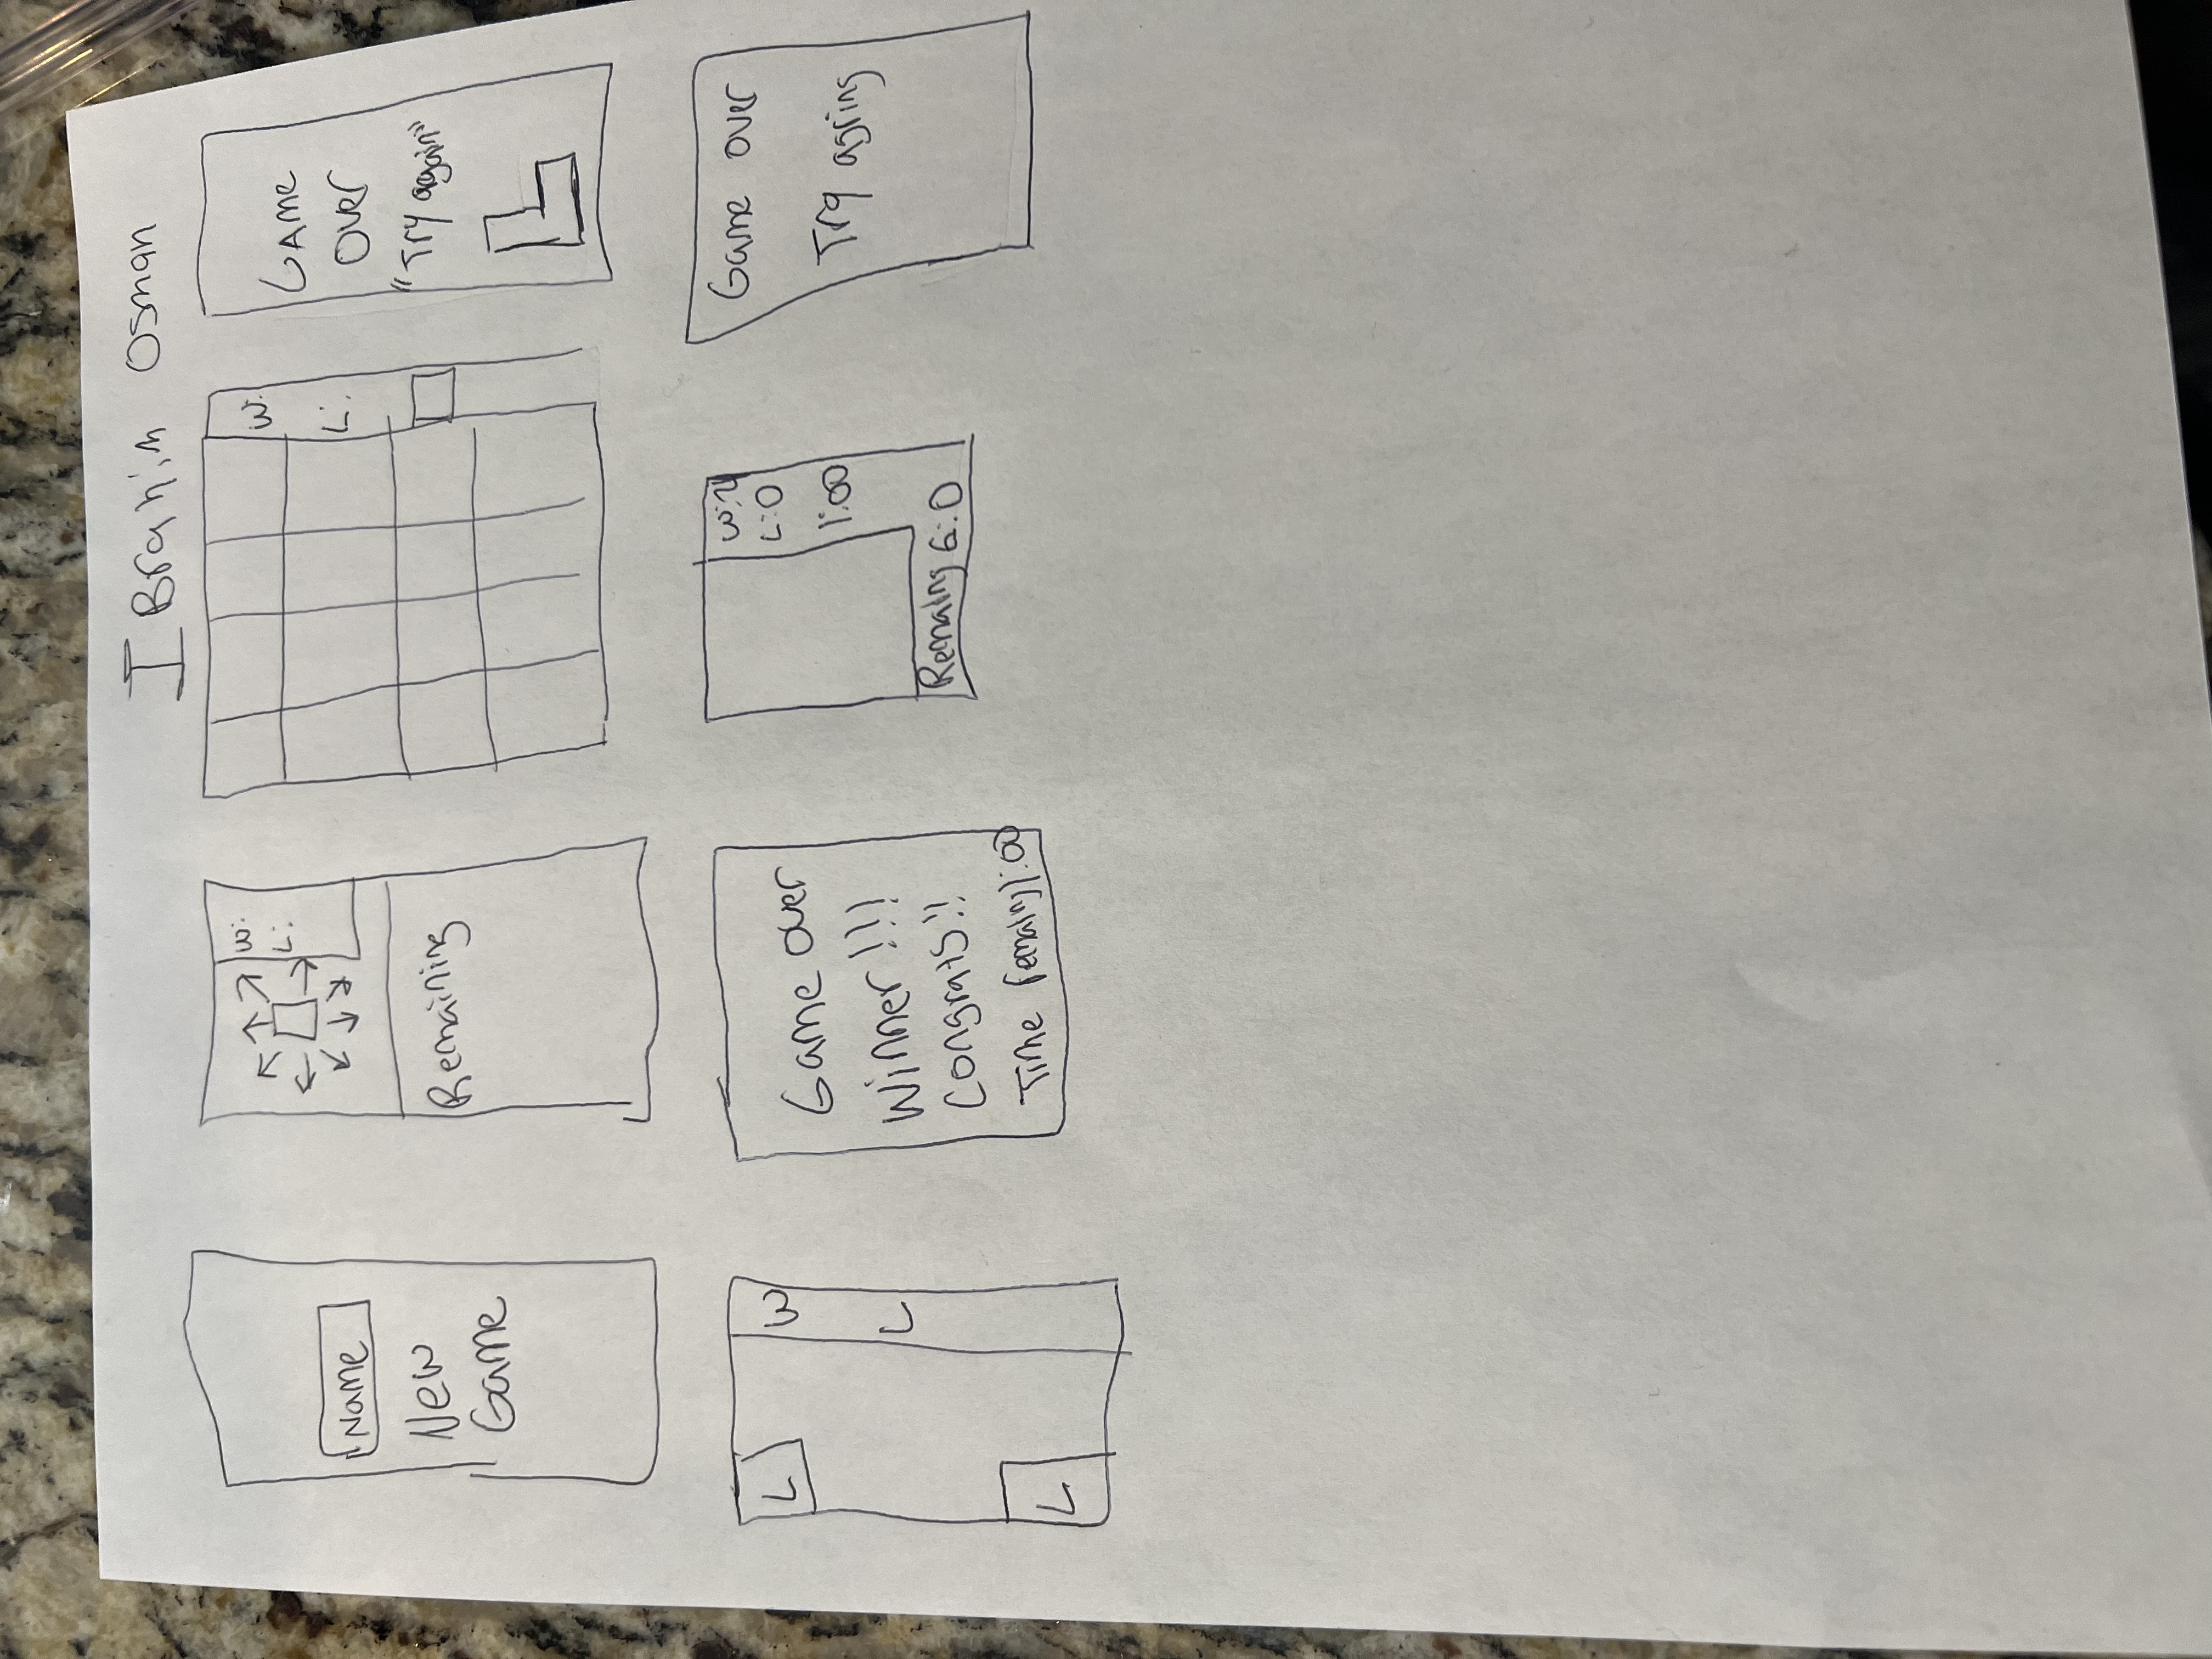 IBrahim Osman
Name
New
Game
W:
L:
Remaining
W:
L:
GAMe
Over
"Try again"
L
L
W
L
Game over
Winner!!!
Congrats!!
Time remaing 1:00
L:0
1:00
Remaing G:0
Game over
Try agring